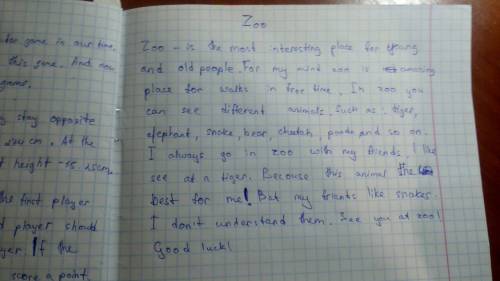 for game in our time.
this game. And now
game.
stay opposite
cm. At the
height
the first player
player should
If the
score a point.
Zoo
Zoo - is the most interesting place for young
and old people. For my mind zoo is amazing
place for walks in free time. In zoo you
can see different animals. Such as: tiger,
elephant, snake, bear, cheetah, panda and so on.
I always go in zoo with my friends. I like
see at a tiger. Because this animal the
best for me! But my friends like snakes.
I don't understand them. See you at zoo!
Good luck!